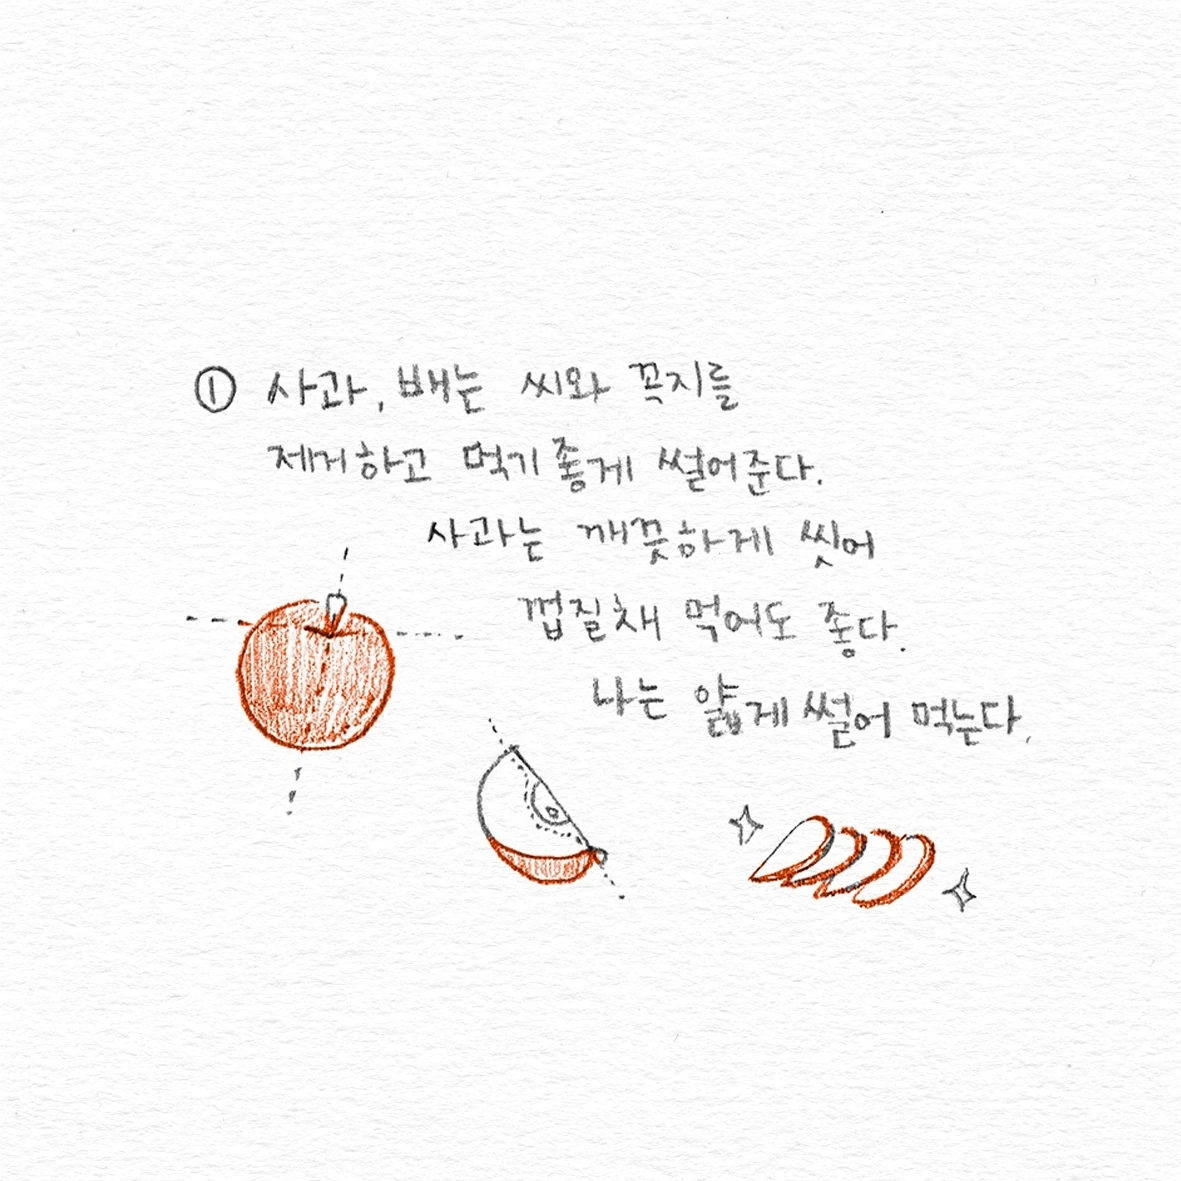 ① 사과, 배는 씨와 꼭지를
제거하고 먹기좋게 썰어준다.
사과는 깨끗하게 씻어
껍질채 먹어도 좋다.
나는 얇게 썰어 먹는다.